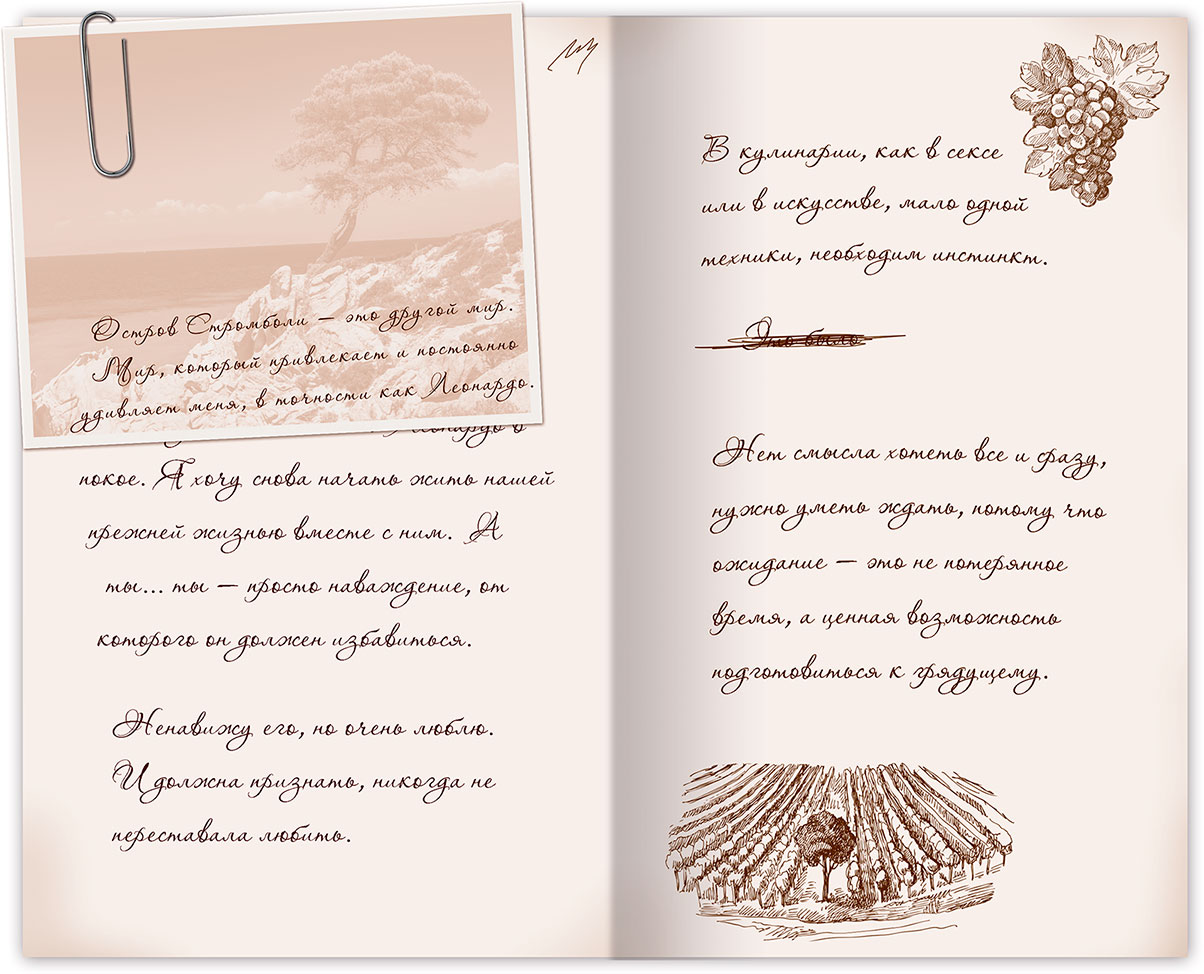 Остров Стромболи — это другой мир.
Мир, который привлекает и постоянно
удивляет меня, в точности как Леонардо.
покое. Я хочу снова начать жить нашей
прежней жизнью вместе с ним. А
ты... ты — просто наваждение, от
которого он должен избавиться.
Ненавижу его, но очень люблю.
И должна признать, никогда не
переставала любить.
В кулинарии, как в сексе
или в искусстве, мало одной
техники, необходим инстинкт.
Это было
Нет смысла хотеть все и фазу,
нужно уметь ждать, потому что
ожидание — это не потерянное
время, а ценная возможность
подготовиться к грядущему.